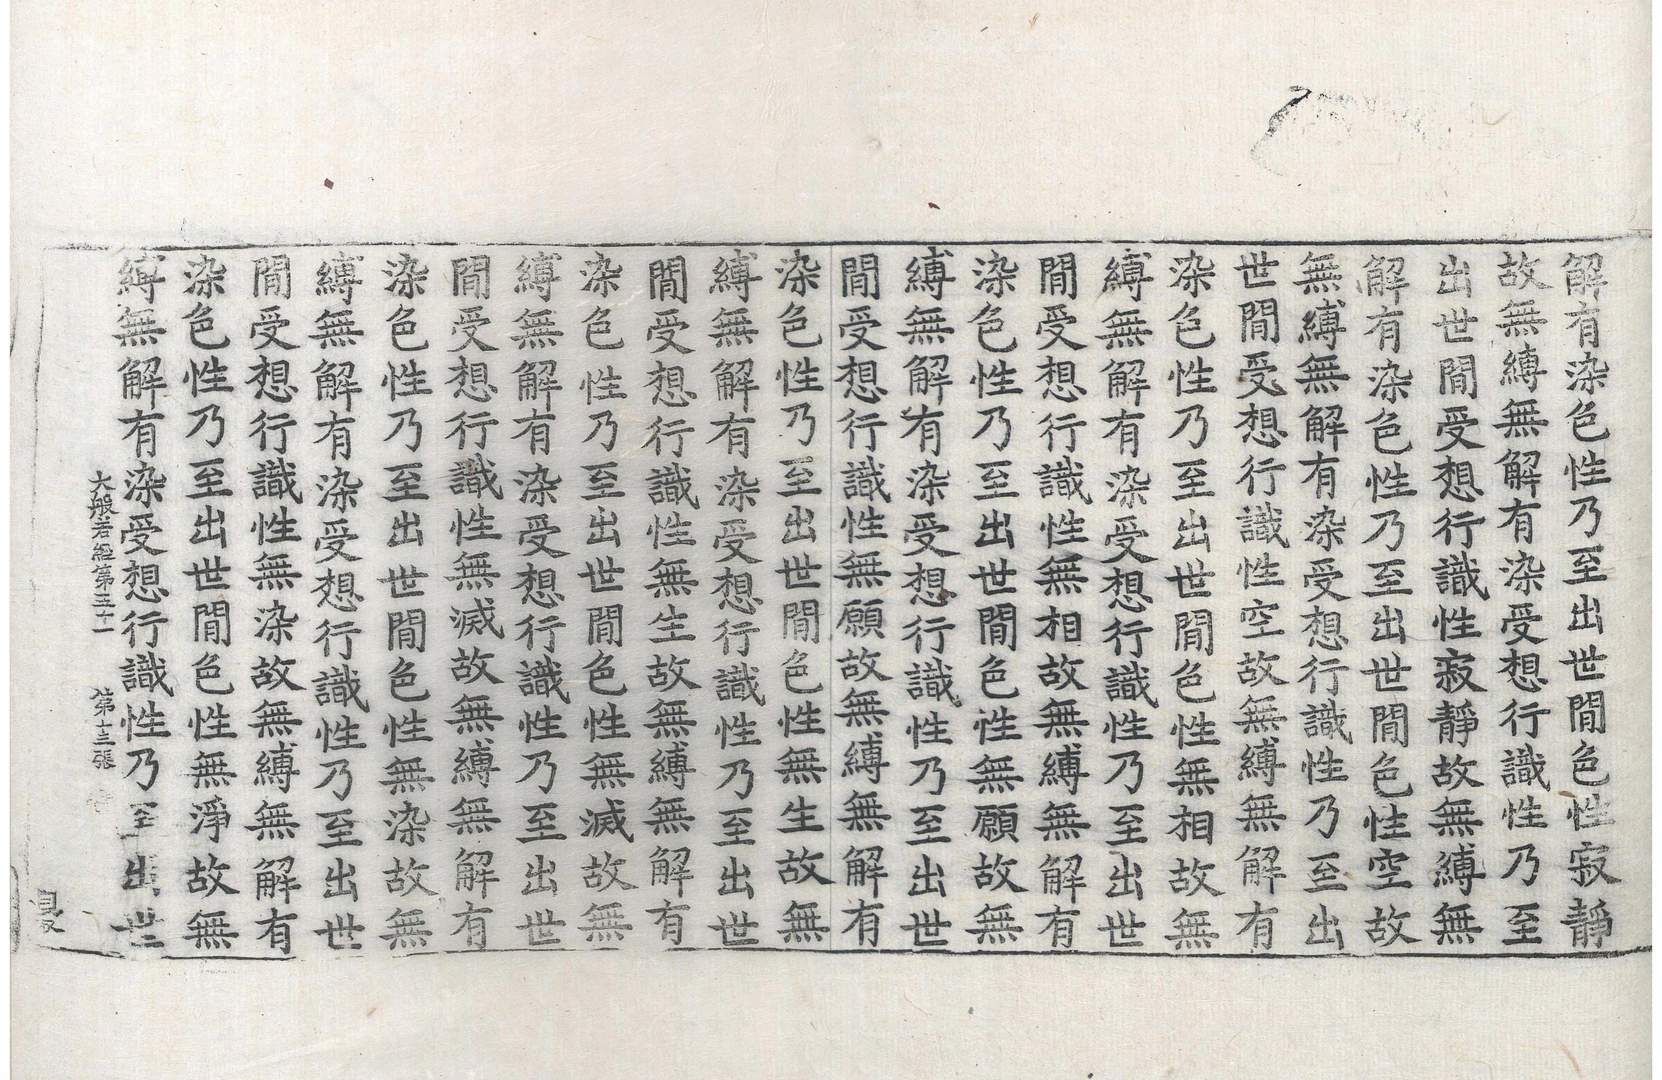 解有染色性乃至出世間色性寂靜
故無縛無解有染受想行識性乃至
出世間受想行識性寂靜故無縛無
解有染色性乃至出世間色性空故
無縛無解有染受想行識性乃至出
世間受想行識性空故無縛無解有
染色性乃至出世間色性無相故無
縛無解有染受想行識性乃至出世
間受想行識性無相故無縛無解有
染色性乃至出世間色性無願故無
縛無解有染受想行識性乃至出世
間受想行識性無願故無縛無解有
染色性乃至出世間色性無生故無
縛無解有染受想行識性乃至出世
間受想行識性無生故無縛無解有
染色性乃至出世間色性無滅故無
縛無解有染受想行識性乃至出世
間受想行識性無滅故無縛無解有
染色性乃至出世間色性無染故無
縛無解有染受想行識性乃至出世
間受想行識性無染故無縛無解有
染色性乃至出世間色性無淨故無
縛無解有染受想行識性乃至出世
大般若經第五十一 第十三張